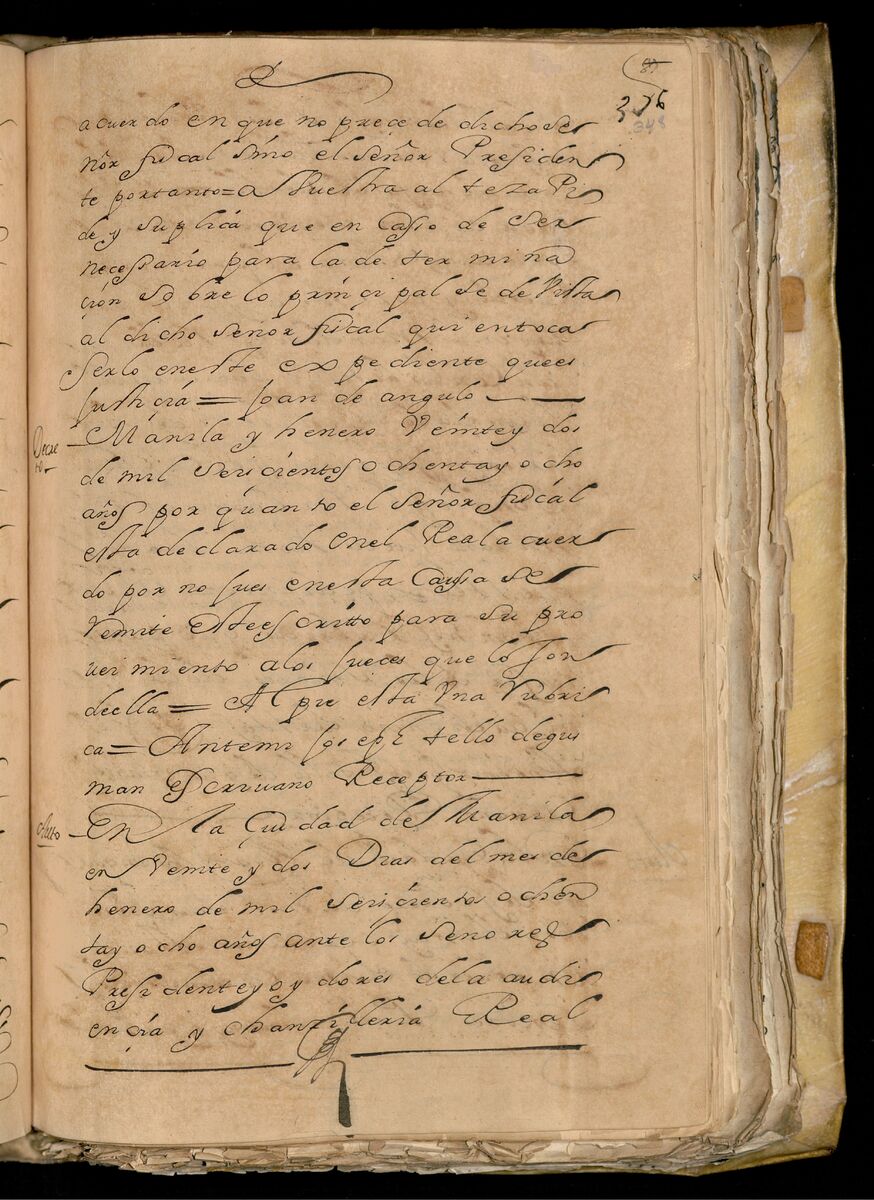 87
376
348
acuerdo en que no preçede dicho se
ñor fiscal sino el señor Presiden
te portanto = a Vuestra alteza Pi
de y suplica que en Casso de ser
necessario para la determina
cion sobre lo prinçipal se de Vista
al dicho señor fiscal quientoca
serlo eneste expediente quees
justiçia = Joan de angulo
Decre
to
Manila y henero Veinte y dos
de mil seiscientos ochenta y ocho
años por quanto el señor fiscal
esta declarado enel Real acuer
do por no jues enesta Caussa se
Remite esteescritto para su pro
ueimiento alos jueces que lo son
deella = Al pie esta Vna Rubri
ca = Antemi Joseph tello degus
man Escriuano Receptor
Auto
En la Ciudad de Manila
en Veinte y dos Dias del mes de
henero de mil seisçientos ochen
ta y ocho años ante los señores
Presidente y oydores dela audi
ençia y chanzilleria Real